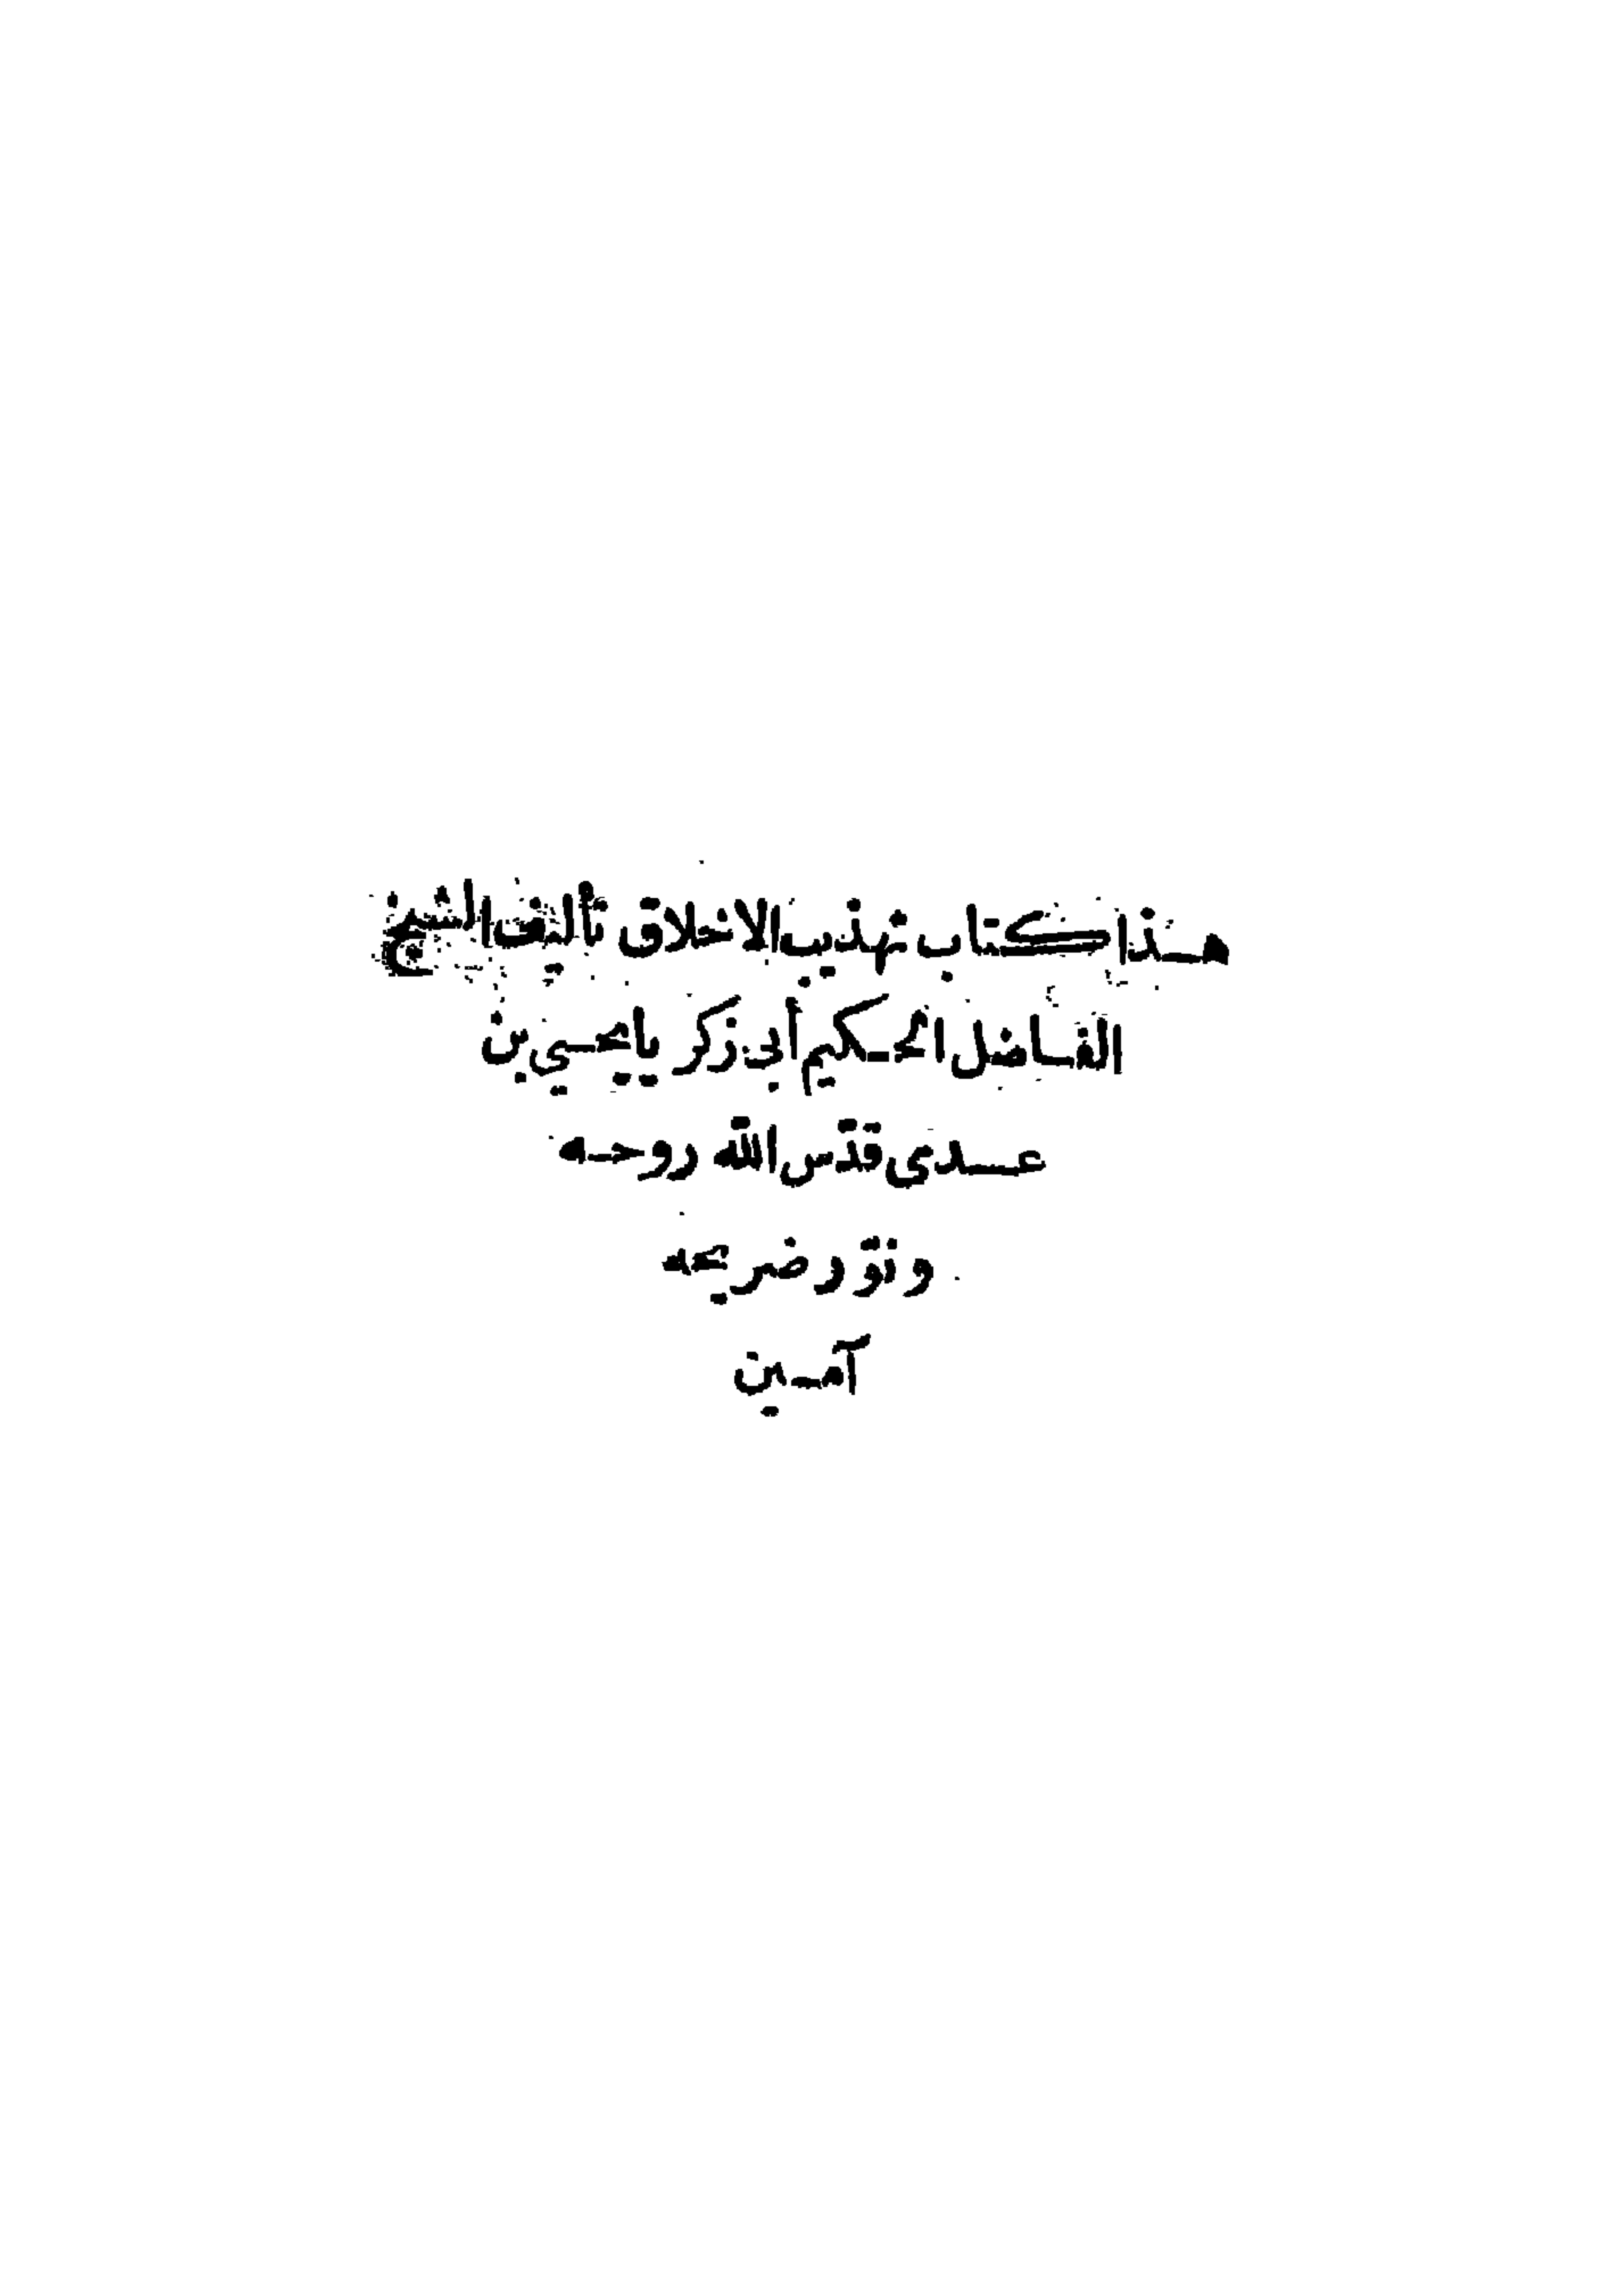 هذا كتاب تهذيب الاخلاق تأليف الشيخ
الفاضل الحكيم أبي زكريا يحيي بن
عدى قدّس الله روحه
ونوّر ضريحه
آمين